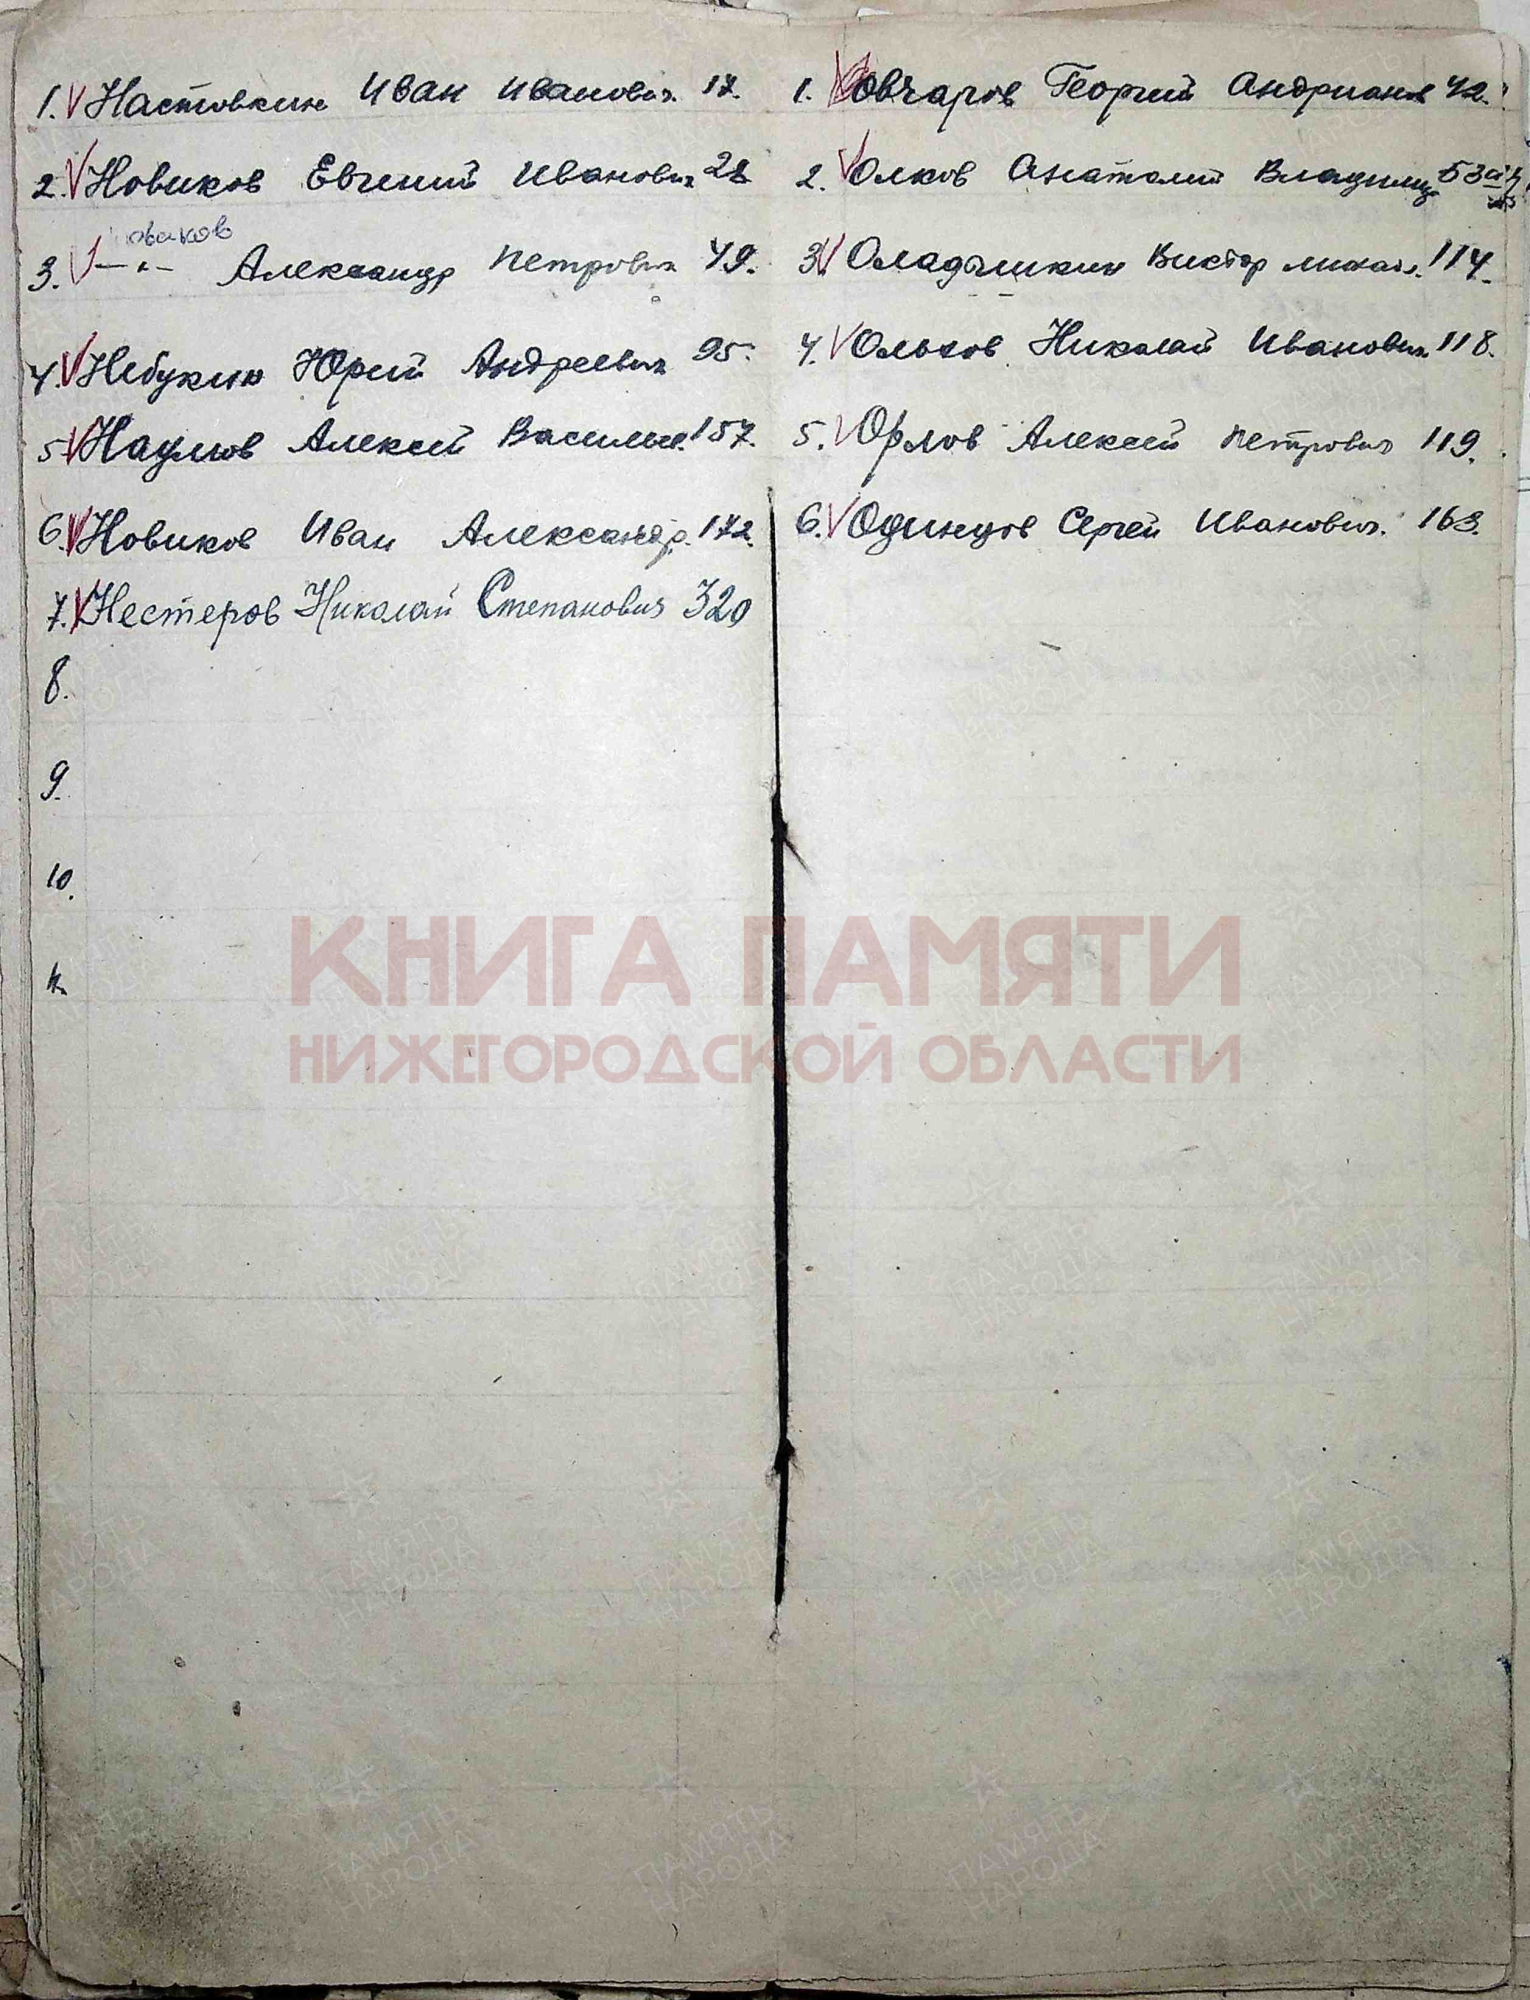 1. Настовкин Иван Иванович 17.
2. Новиков Евгений Иванович 28
новиков
3. —"— Александр Петрович 49.
4. Небукин Юрий Андреевич 95.
5. Наумов Алексей Василье. 157.
6. Новиков Иван Александр. 172.
7. Нестеров Николай Степанович 320
8.
9.
10.
11.
1. Овчаров Георгий Андрианов 42.
2. Олков Анатолий Владимир 53
3. Оладышкин Виктор михайл. 114.
4. Ольхов Николай Иванович 118.
5. Орлов Алексей Петрович 119.
6. Одинцов Сергей Иванович. 163.
КНИГА ПАМЯТИ
НИЖЕГОРОДСКОЙ ОБЛАСТИ